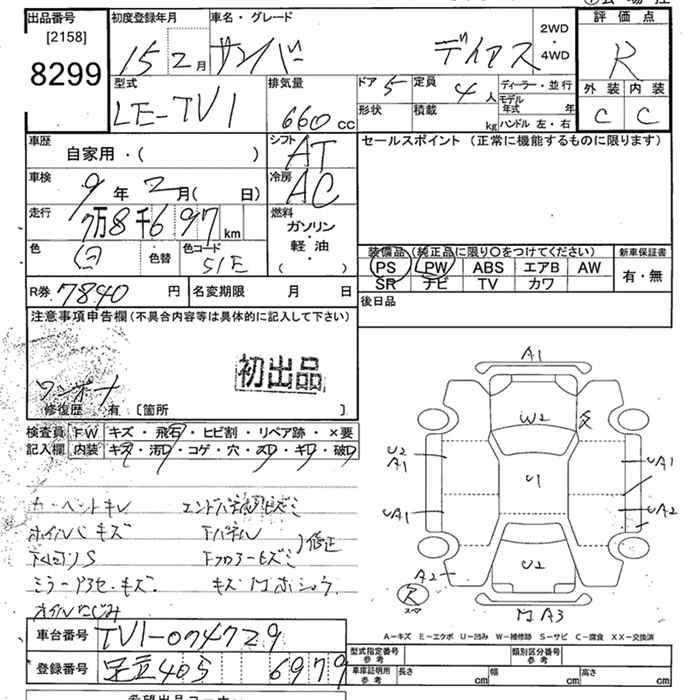 出品番号 [2158] 8299
初度登録年月 15 2月
車名・グレード サンバー ディアス
2WD・4WD
評価点 R
外装 内装
C C
型式 LE-TV1
排気量 660 cc
ドア 5 定員 4人
形状 積載 kg
ディーラー・並行
モデル年式 年
ハンドル 左・右
車歴 自家用・( )
シフト AT
セールスポイント (正常に機能するものに限ります)
車検 9年 2月( 日)
冷房 AC
走行 7万8千697 km
燃料 ガソリン・軽油・( )
色 白 色替 色コード 51E
装備品 (純正品に限り○をつけてください) 新車保証書
PS PW ABS エアB AW 有・無
SR ナビ TV カワ
R券 7840 円 名変期限 月 日
後日品
注意事項申告欄 (不具合内容等は具体的に記入して下さい)
初出品
ワンオーナ
修復歴 有 [箇所 ]
検査員 FW キズ・飛石・ヒビ割・リペア跡・×要
記入欄 内装 キズ・汚レ・コゲ・穴・スレ・キレ・破レ
A1
W2
U2 A1
U1
UA1
UA1
UA2
A2
U2
A3
カーペットキレ エンドパネル
ホイルCキズ Fパネル 修正
下回りS Fフロアー
ミラー キズ
オイルにじみ
車台番号 TV1-074729
登録番号 足立 405 6979
A-キズ E-エクボ U-凹み W-補修跡 S-サビ C-腐食 XX-交換済
型式指定番号 参考 類別区分番号 参考
車庫証明用 参考 長さ cm 幅 cm 高さ cm